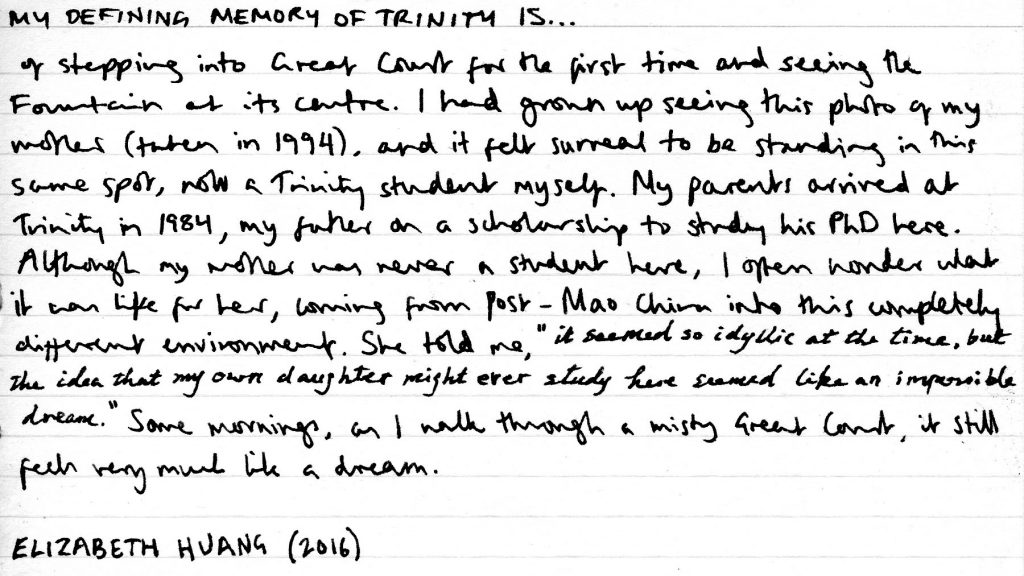 MY DEFINING MEMORY OF TRINITY IS...
of stepping into Great Court for the first time and seeing the
Fountain at its centre. I had grown up seeing this photo of my
mother (taken in 1994), and it felt surreal to be standing in this
same spot, now a Trinity student myself. My parents arrived at
Trinity in 1984, my father on a scholarship to study his PhD here.
Although my mother was never a student here, I often wonder what
it was like for her, coming from Post-Mao China into this completely
different environment. She told me, "it seemed so idyllic at the time, but
the idea that my own daughter might ever study here seemed like an impossible
dream." Some mornings, as I walk through a misty Great Court, it still
feels very much like a dream.
ELIZABETH HUANG (2016)